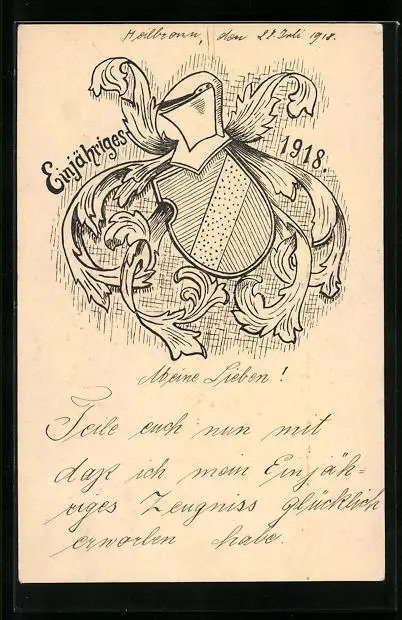 Heilbronn, den 27 Juli 1918.
Einjähriges
1918.
Meine Lieben!
Teile euch nun mit
daß ich mein Einjäh=
riges Zeugniss glücklich
erworben habe.